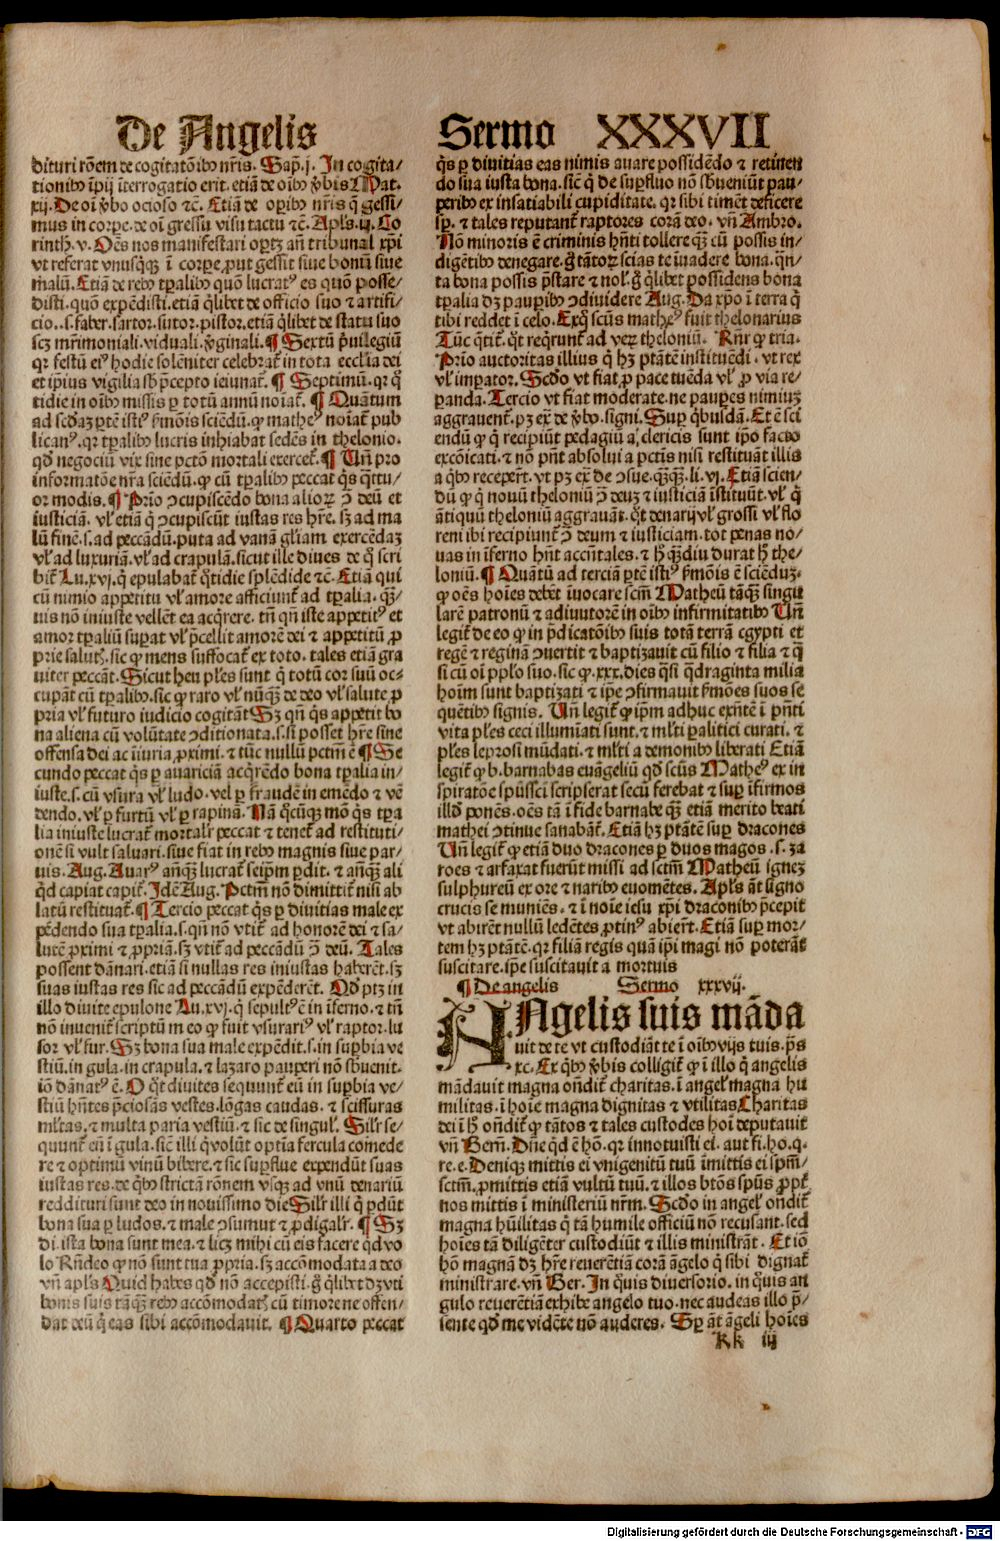 De Angelis
dituri rōem de cogitatōibꝰ nr̄is. Sap. j. In cogita-
tionibꝰ īpij īterrogatio erit. etiā de oībꝰ v̄bis Mat.
xij. De oī v̄bo ocioso ⁊c̄. Etiā de oꝑibꝰ nr̄is q̄ gessi-
mus in corꝑe. de oī gressu visu tactu ⁊c̄. Apl̄s. ij. Co
rinth. v. Oēs nos manifestari oportꝫ an̄ tribunal xp̄i
vt referat vnusq̄sqꝫ ī corꝑe, ꝓut gessit siue bonū siue
malū. Etiā de rebꝰ tꝑalibꝰ quō lucratꝰ es quō posse-
disti. quō expēdisti. etiā q̄libet de officio suo ⁊ artifi-
cio. .s. faber. sartor. sutor. pistor. etiā q̄libet de statu suo
scꝫ mr̄imoniali. viduali. v̄ginali. ¶ Sextū p̄uilegiū
qꝛ festū eiꝰ hodie solēniter celebrat̄ in tota eccl̄ia dei
et ip̄ius vigilia sb̄ p̄cepto ieiunat̄. ¶ Septimū. qꝛ q̄
tidie in oībꝰ missis ꝑ totū annū noīat̄. ¶ Quātum
ad scd̄aꝫ ꝑtē istiꝰ s̄mōnis sciēdū. ꝙ matheꝰ noīat̄ pub
licanꝰ. qꝛ tꝑalibꝰ lucris inhiabat sedēs in thelonio.
qd̄ negociū vix sine pctō mortali exercet̄. ¶ Un̄ pro
informatōe nr̄a sciēdū. ꝙ cū tꝑalibꝰ peccat q̄s q̄ttu-
or modis. ¶ Prīo ꝯcupiscēdo bona alioꝝ ꝯ̄ deū et
iusticiā. vl̄ etiā q̄ ꝯcupiscūt iustas res hr̄e. sꝫ ad ma
lū finē. s. ad peccādū. puta ad vanā gl̄iam exercēdaꝫ
vl̄ ad luxuriā. vl̄ ad crapulā. sicut ille diues de q̄ scri
bit̄ Lu. xvj. q̄ epulabat̄ q̄tidie splēdide ⁊c̄. Etiā qui
cū nimio appetitu vl̄ amore afficiunt̄ ad tꝑalia. qꝫ-
uis nō iniuste vellēt ea acq̄rere. tn̄ qn̄ iste appetitꝰ et
amor tꝑaliū suꝑat vl̄ p̄cellit amorē dei ⁊ appetitū ꝓ
prie saluꝭ. sic ꝙ mens suffocat̄ ex toto. tales etiā gra
uiter peccāt. Sicut heu pl̄es sunt q̄ totū cor suū oc-
cupāt cū tꝑalibꝰ. sic ꝙ raro vl̄ nūqꝫ de deo vl̄ salute ꝓ
pria vl̄ futuro iudicio cogitāt Sꝫ qn̄ q̄s appetit bo
na aliena cū volūtate ꝯditionata. s. si posset hr̄e sine
offensa dei ac iniuria ꝓximi. ⁊ tūc nullū pctm̄ ē ¶ Se
cundo peccat q̄s ꝑ auariciā acq̄rēdo bona tꝑalia in-
iuste. s. cū vsura vl̄ ludo. vel ꝑ fraudē in emēdo ⁊ vē
dendo. vl̄ ꝑ furtū vl̄ ꝑ rapinā. Nā q̄cūqꝫ mō q̄s tꝑa
lia iniuste lucrat̄ mortalr̄ peccat ⁊ tenet̄ ad restituti-
onē si vult saluari. siue fiat in rebꝰ magnis siue par-
uis. Aug. Auarꝰ anq̄ꝫ lucrat̄ seip̄m ꝑdit. ⁊ anq̄ꝫ ali
q̄d capiat capit̄. Idē Aug. Pctm̄ nō dimittit̄ nisi ab
latū restituat̄. ¶ Tercio peccat q̄s ꝑ diuitias male ex
pēdendo sua tꝑalia. s. qn̄ nō vtit̄ ad honorē dei ⁊ sa-
lutē ꝓximi ⁊ ꝓpriā. sꝫ vtit̄ ad peccādū ꝯ̄ deū. Tales
possent dānari. etiā si nullas res iniustas haberēt. sꝫ
suas iustas res sic ad peccādū expēderēt. Qd̄ ptꝫ in
illo diuite epulone Lu. xvj. q̄ sepultꝰ ē in īferno. ⁊ tn̄
nō inuenit̄ scriptū in eo ꝙ fuit vsurariꝰ vl̄ raptor. lu
sor vl̄ fur. Sꝫ bona sua male expēdit. s. in suꝑbia ve
stiū. in gula. in crapula. ⁊ lazaro pauperi nō sb̄uenit.
iō dānatꝰ ē. O q̄t diuites sequunt̄ eū in suꝑbia ve-
stiū hn̄tes p̄ciosas vestes. lōgas caudas. ⁊ scissuras
ml̄tas. ⁊ multa paria vestiū. ⁊ sic de singul̄. Silr̄ se-
quunt̄ eū ī gula. sic illi q̄ volūt optīa fercula comede
re ⁊ optimū vinū bibere. ⁊ sic suꝑflue expendūt suas
iustas res. de q̄bꝰ strictā rōnem vsqꝫ ad vnū denariū
reddituri sunt deo in nouissimo die Silr̄ illi q̄ ꝑdūt
bona sua ꝑ ludos. ⁊ male ꝯsumūt ⁊ ꝓdigalr̄. ¶ Sꝫ
di. ista bona sunt mea. ⁊ licꝫ mihi cū eis facere q̄d vo
lo Rn̄deo ꝙ nō sunt tua ꝓpria. sꝫ accōmodata a deo
vn̄ apl̄s Quid habes qd̄ nō accepisti. g̊ q̄libet dꝫ vti
bonis suis tāq̄ꝫ rebꝰ accōmodatꝭ cū timore ne offen-
dat deū q̄ eas sibi accōmodauit. ¶ Quarto peccat
Sermo XXXVII
q̄s ꝑ diuitias eas nimis auare possidēdo ⁊ retinen
do sua iusta bona. sic̄ q̄ de suꝑfluo nō sb̄ueniūt pau-
peribꝰ ex insatiabili cupiditate. qꝛ sibi timēt deficere
sꝑ. ⁊ tales reputant̄ raptores corā deo. vn̄ Ambro.
Nō minoris ē criminis hn̄ti tollere q̄ꝫ cū possis in-
digētibꝰ denegare. g̊ tātoꝝ scias te īuadere bona. q̄n-
ta bona possis p̄stare ⁊ nol̄. g̊ q̄libet possidens bona
tꝑalia dꝫ pauꝑibꝰ ꝯdiuidere Aug. Da xp̄o ī terra q̄
tibi reddet ī celo. Ex q̊ scūs matheꝰ fuit thelonarius
Tūc q̄rit̄. q̄t reqͥrunt̄ ad veꝝ theloniū. Rn̄r ꝙ tria.
Prīo auctoritas illius q̄ hꝫ ptātē instituēdi. vt rex
vl̄ imꝑator. Scd̄o vt fiat, ꝓ pace tuēda vl̄ ꝓ via re-
ꝑanda. Tercio vt fiat moderate. ne pauꝑes nimiuꝫ
aggrauent̄. ptꝫ ex̄ de v̄bo. signi. Suꝑ q̄busdā. Et ē sci
endū ꝙ q̄ recipiūt pedagiū a clericis sunt ip̄o facto
excōicati. ⁊ nō pn̄t absolui a pctīs nisi restituāt illis
a q̄bꝰ receper̄t. vt ptꝫ ex̄ de ꝯsue. q̄ꝫq̄ꝫ. li. vj. Etiā scien-
dū ꝙ q̄ nouū theloniū ꝯ̄ deuꝫ ⁊ iusticiā īstituūt. vl̄ q̄
ātiquū theloniū aggrauāt. q̄t denarij vl̄ grossi vl̄ flo
reni ibi recipiunt̄ ꝯ̄ deum ⁊ iusticiam. tot penas no-
uas in īferno hn̄t accn̄tales. ⁊ h̄ q̄ꝫdiu durat h̄ the-
loniū. ¶ Quātū ad terciā ꝑtē istiꝰ s̄mōis ē sciēduꝫ.
ꝙ oēs hoīes debēt īuocare scm̄ Matheū tāq̄ꝫ singu
larē patronū ⁊ adiutorē in oībꝰ infirmitatibꝰ Un̄
legit̄ de eo ꝙ in p̄dicatōibꝰ suis totā terrā egypti et
regē ⁊ reginā ꝯuertit ⁊ baptizauit cū filio ⁊ filia ⁊ q̄
si cū oī ppl̄o suo. sic ꝙ. xxx. dies q̄si q̄draginta milia
hoīm sunt baptizati ⁊ ip̄e ꝯfirmauit s̄mōes suos se
quētibꝰ signis. Un̄ legit̄ ꝙ ip̄m adhuc exn̄te ī pn̄ti
vita pl̄es ceci illumīati sunt. ⁊ ml̄ti ꝑalitici curati. ⁊
pl̄es leprosi mūdati. ⁊ ml̄ti a demonibꝰ liberati Etiā
legit̄ ꝙ b. barnabas euāgeliū qd̄ scūs Matheꝰ ex in
spiratōe spūssci scripserat secū ferebat ⁊ suꝑ īfirmos
illd̄ ponēs. oēs tā ī fide barnabe q̄ꝫ etiā merito beati
mathei ꝯtinue sanabāt̄. Etiā hꝫ ptātē suꝑ dracones
Un̄ legit̄ ꝙ etiā duo dracones ꝑ duos magos. s. za
roes ⁊ arfaxat fuerūt missi ad sctm̄ Matheū ignez
sulphureū ex ore ⁊ naribꝰ euomētes. Apl̄s āt signo
crucis se muniēs. ⁊ ī noīe iesu xp̄i draconibꝰ p̄cepit
vt abirēt nullū ledētes, ꝓtinꝰ abier̄t. Etiā suꝑ mor-
tem hꝫ ptātē. qꝛ filiā regis quā ip̄i magi nō poterāt
suscitare. ip̄e suscitauit a mortuis
¶ De angelis Sermo xxxvij.
ANgelis suis māda
uit de te vt custodiāt te ī oībꝰ vijs tuis. p̄s
xc. Ex q̄bꝰ v̄bis colligit̄ ꝙ ī illo q̄ angelis
mādauit magna on̄dit̄ charitas. ī angel̄ magna hu
militas. ī hoīe magna dignitas ⁊ vtilitas Charitas
dei ī h̄ on̄dit̄ ꝙ tātos ⁊ tales custodes hoī deputauit
vn̄ Bern̄. Dn̄e q̄d ē hō. qꝛ innotuisti ei. aut fi. ho. q.
re. e. Deniqꝫ mittis ei vnigenitū tuū īmittis ei spm̄-
sctm̄, ꝓmittis etiā vultū tuū. ⁊ illos btōs spūs ꝓpt̄
nos mittis ī ministeriū nr̄m. Scd̄o in angel̄ on̄dit̄
magna hūilitas q̄ tā humile officiū nō recusant. sed
hoīes tā diligēter custodiūt ⁊ illis ministrāt. Et iō
hō magnā dꝫ hr̄e reuerētiā corā āgelo q̄ sibi dignat̄
ministrare. vn̄ Ber. In q̄uis diuersorio. in q̄uis an
gulo reuerētiā exhibe angelo tuo. nec audeas illo p̄-
sente qd̄ me vidēte nō auderes. Sꝑ āt āgeli hoīes
Kk iij
Digitalisierung gefördert durch die Deutsche Forschungsgemeinschaft - DFG